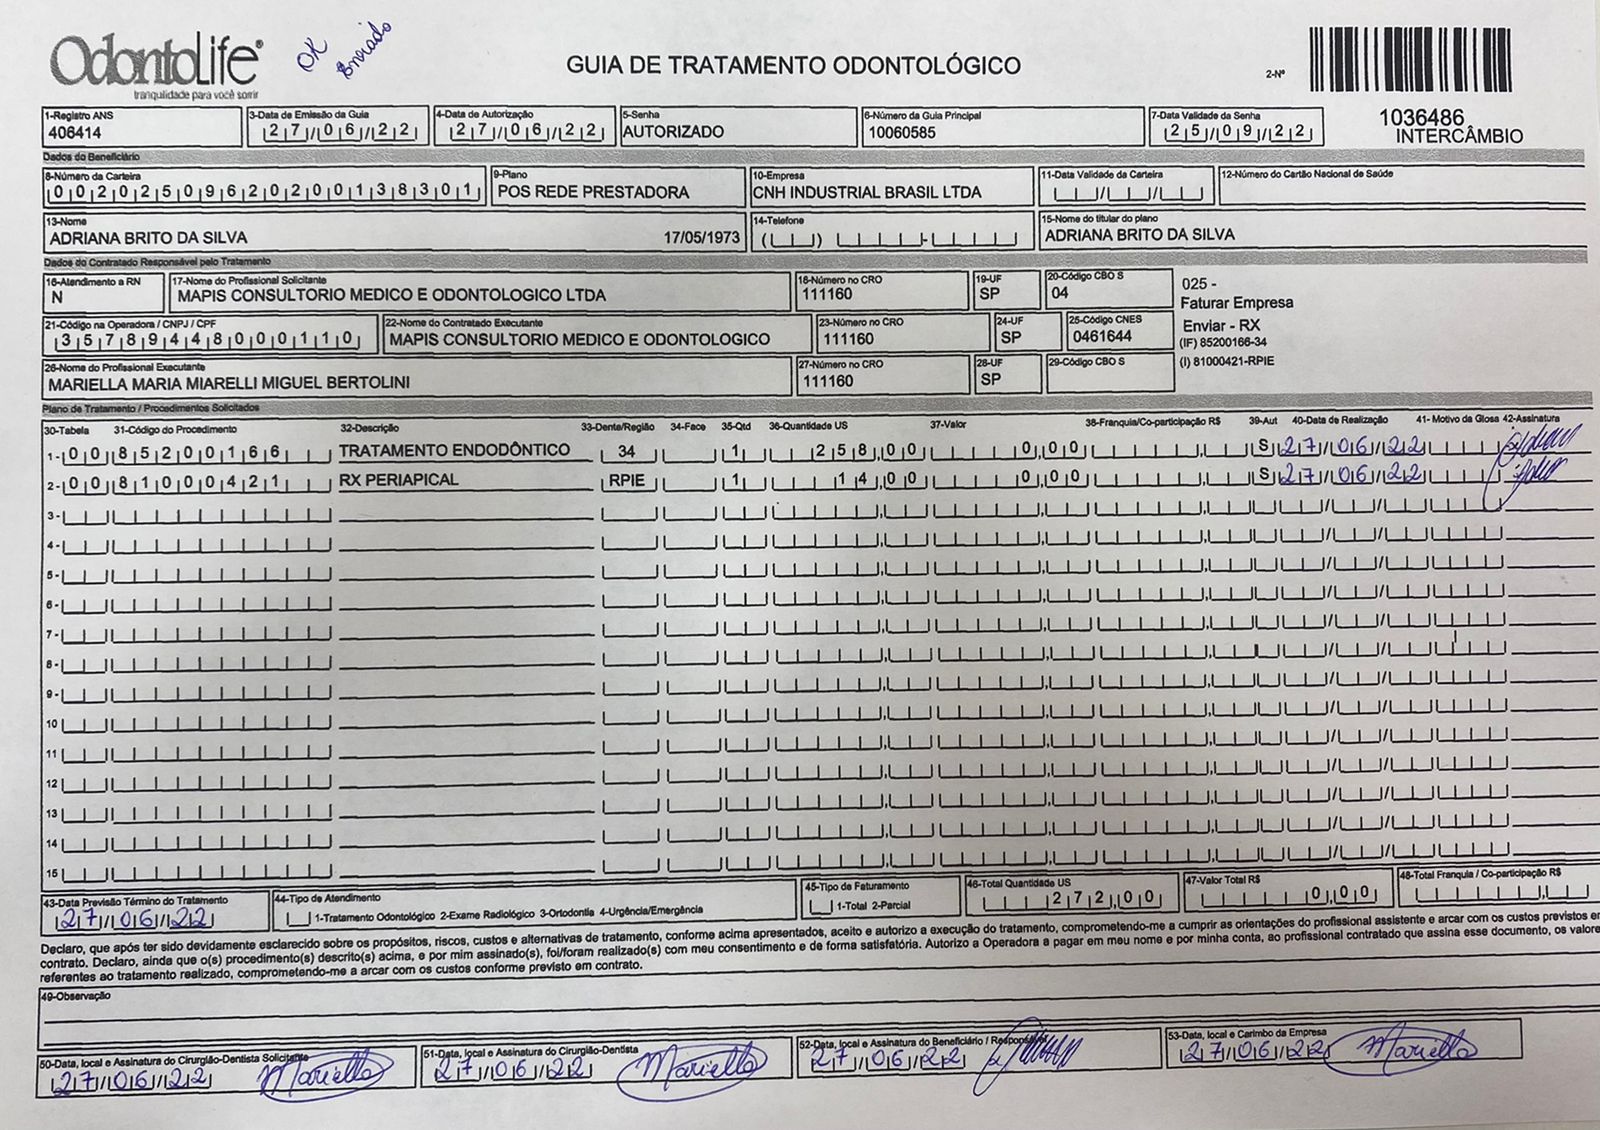 OdontoLife®
tranquilidade para você sorrir
OK
Enviado
GUIA DE TRATAMENTO ODONTOLÓGICO
2-Nº
1036486
INTERCÂMBIO
1-Registro ANS
406414
3-Data de Emissão da Guia
27/06/22
4-Data de Autorização
27/06/22
5-Senha
AUTORIZADO
6-Número da Guia Principal
10060585
7-Data Validade da Senha
25/09/22
Dados do Beneficiário
8-Número da Carteira
00202509620200138301
9-Plano
POS REDE PRESTADORA
10-Empresa
CNH INDUSTRIAL BRASIL LTDA
11-Data Validade da Carteira
12-Número do Cartão Nacional de Saúde
13-Nome
ADRIANA BRITO DA SILVA 17/05/1973
14-Telefone
15-Nome do titular do plano
ADRIANA BRITO DA SILVA
Dados do Contratado Responsável pelo Tratamento
16-Atendimento a RN
N
17-Nome do Profissional Solicitante
MAPIS CONSULTORIO MEDICO E ODONTOLOGICO LTDA
18-Número no CRO
111160
19-UF
SP
20-Código CBO S
04
025 -
Faturar Empresa
Enviar - RX
(IF) 85200166-34
(I) 81000421-RPIE
21-Código na Operadora / CNPJ / CPF
35789448000110
22-Nome do Contratado Executante
MAPIS CONSULTORIO MEDICO E ODONTOLOGICO
23-Número no CRO
111160
24-UF
SP
25-Código CNES
0461644
26-Nome do Profissional Executante
MARIELLA MARIA MIARELLI MIGUEL BERTOLINI
27-Número no CRO
111160
28-UF
SP
29-Código CBO S
Plano de Tratamento / Procedimentos Solicitados
30-Tabela 31-Código do Procedimento 32-Descrição 33-Dente/Região 34-Face 35-Qtd 36-Quantidade US 37-Valor 38-Franquia/Co-participação R$ 39-Aut 40-Data de Realização 41- Motivo da Glosa 42-Assinatura
1- 00 85200166 TRATAMENTO ENDODÔNTICO 34 1 258,00 0,00 S 27/06/22
2- 00 81000421 RX PERIAPICAL RPIE 1 14,00 0,00 S 27/06/22
3-
4-
5-
6-
7-
8-
9-
10
11
12
13
14
15
43-Data Previsão Término do Tratamento
27/06/22
44-Tipo de Atendimento
1-Tratamento Odontológico 2-Exame Radiológico 3-Ortodontia 4-Urgência/Emergência
45-Tipo de Faturamento
1-Total 2-Parcial
46-Total Quantidade US
272,00
47-Valor Total R$
0,00
48-Total Franquia / Co-participação R$
Declaro, que após ter sido devidamente esclarecido sobre os propósitos, riscos, custos e alternativas de tratamento, conforme acima apresentados, aceito e autorizo a execução do tratamento, comprometendo-me a cumprir as orientações do profissional assistente e arcar com os custos previstos em
contrato. Declaro, ainda que o(s) procedimento(s) descrito(s) acima, e por mim assinado(s), foi/foram realizado(s) com meu consentimento e de forma satisfatória. Autorizo a Operadora a pagar em meu nome e por minha conta, ao profissional contratado que assina esse documento, os valores
referentes ao tratamento realizado, comprometendo-me a arcar com os custos conforme previsto em contrato.
49-Observação
50-Data, local e Assinatura do Cirurgião-Dentista Solicitante
27/06/22 Mariella
51-Data, local e Assinatura do Cirurgião-Dentista
27/06/22 Mariella
52-Data, local e Assinatura do Beneficiário / Responsável
27/06/22
53-Data, local e Carimbo da Empresa
27/06/22 Mariella